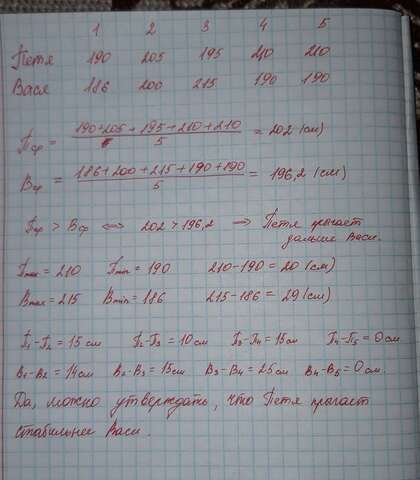 1 2 3 4 5
Петя 190 205 195 210 210
Вася 186 200 215 190 190
Пср = (190+205+195+210+210)/5 = 202 (см)
Вср = (186+200+215+190+190)/5 = 196,2 (см)
Пср > Вср ⟺ 202 > 196,2 ⟹ Петя прыгает
дальше Васи.
Пmax = 210 Пmin = 190 210-190 = 20 (см)
Вmax = 215 Вmin = 186 215-186 = 29 (см)
П1-П2 = 15 см П2-П3 = 10 см П3-П4 = 15 см П4-П5 = 0 см
В1-В2 = 14 см В2-В3 = 15 см В3-В4 = 25 см В4-В5 = 0 см.
Да, можно утверждать, что Петя прыгает
стабильнее Васи.